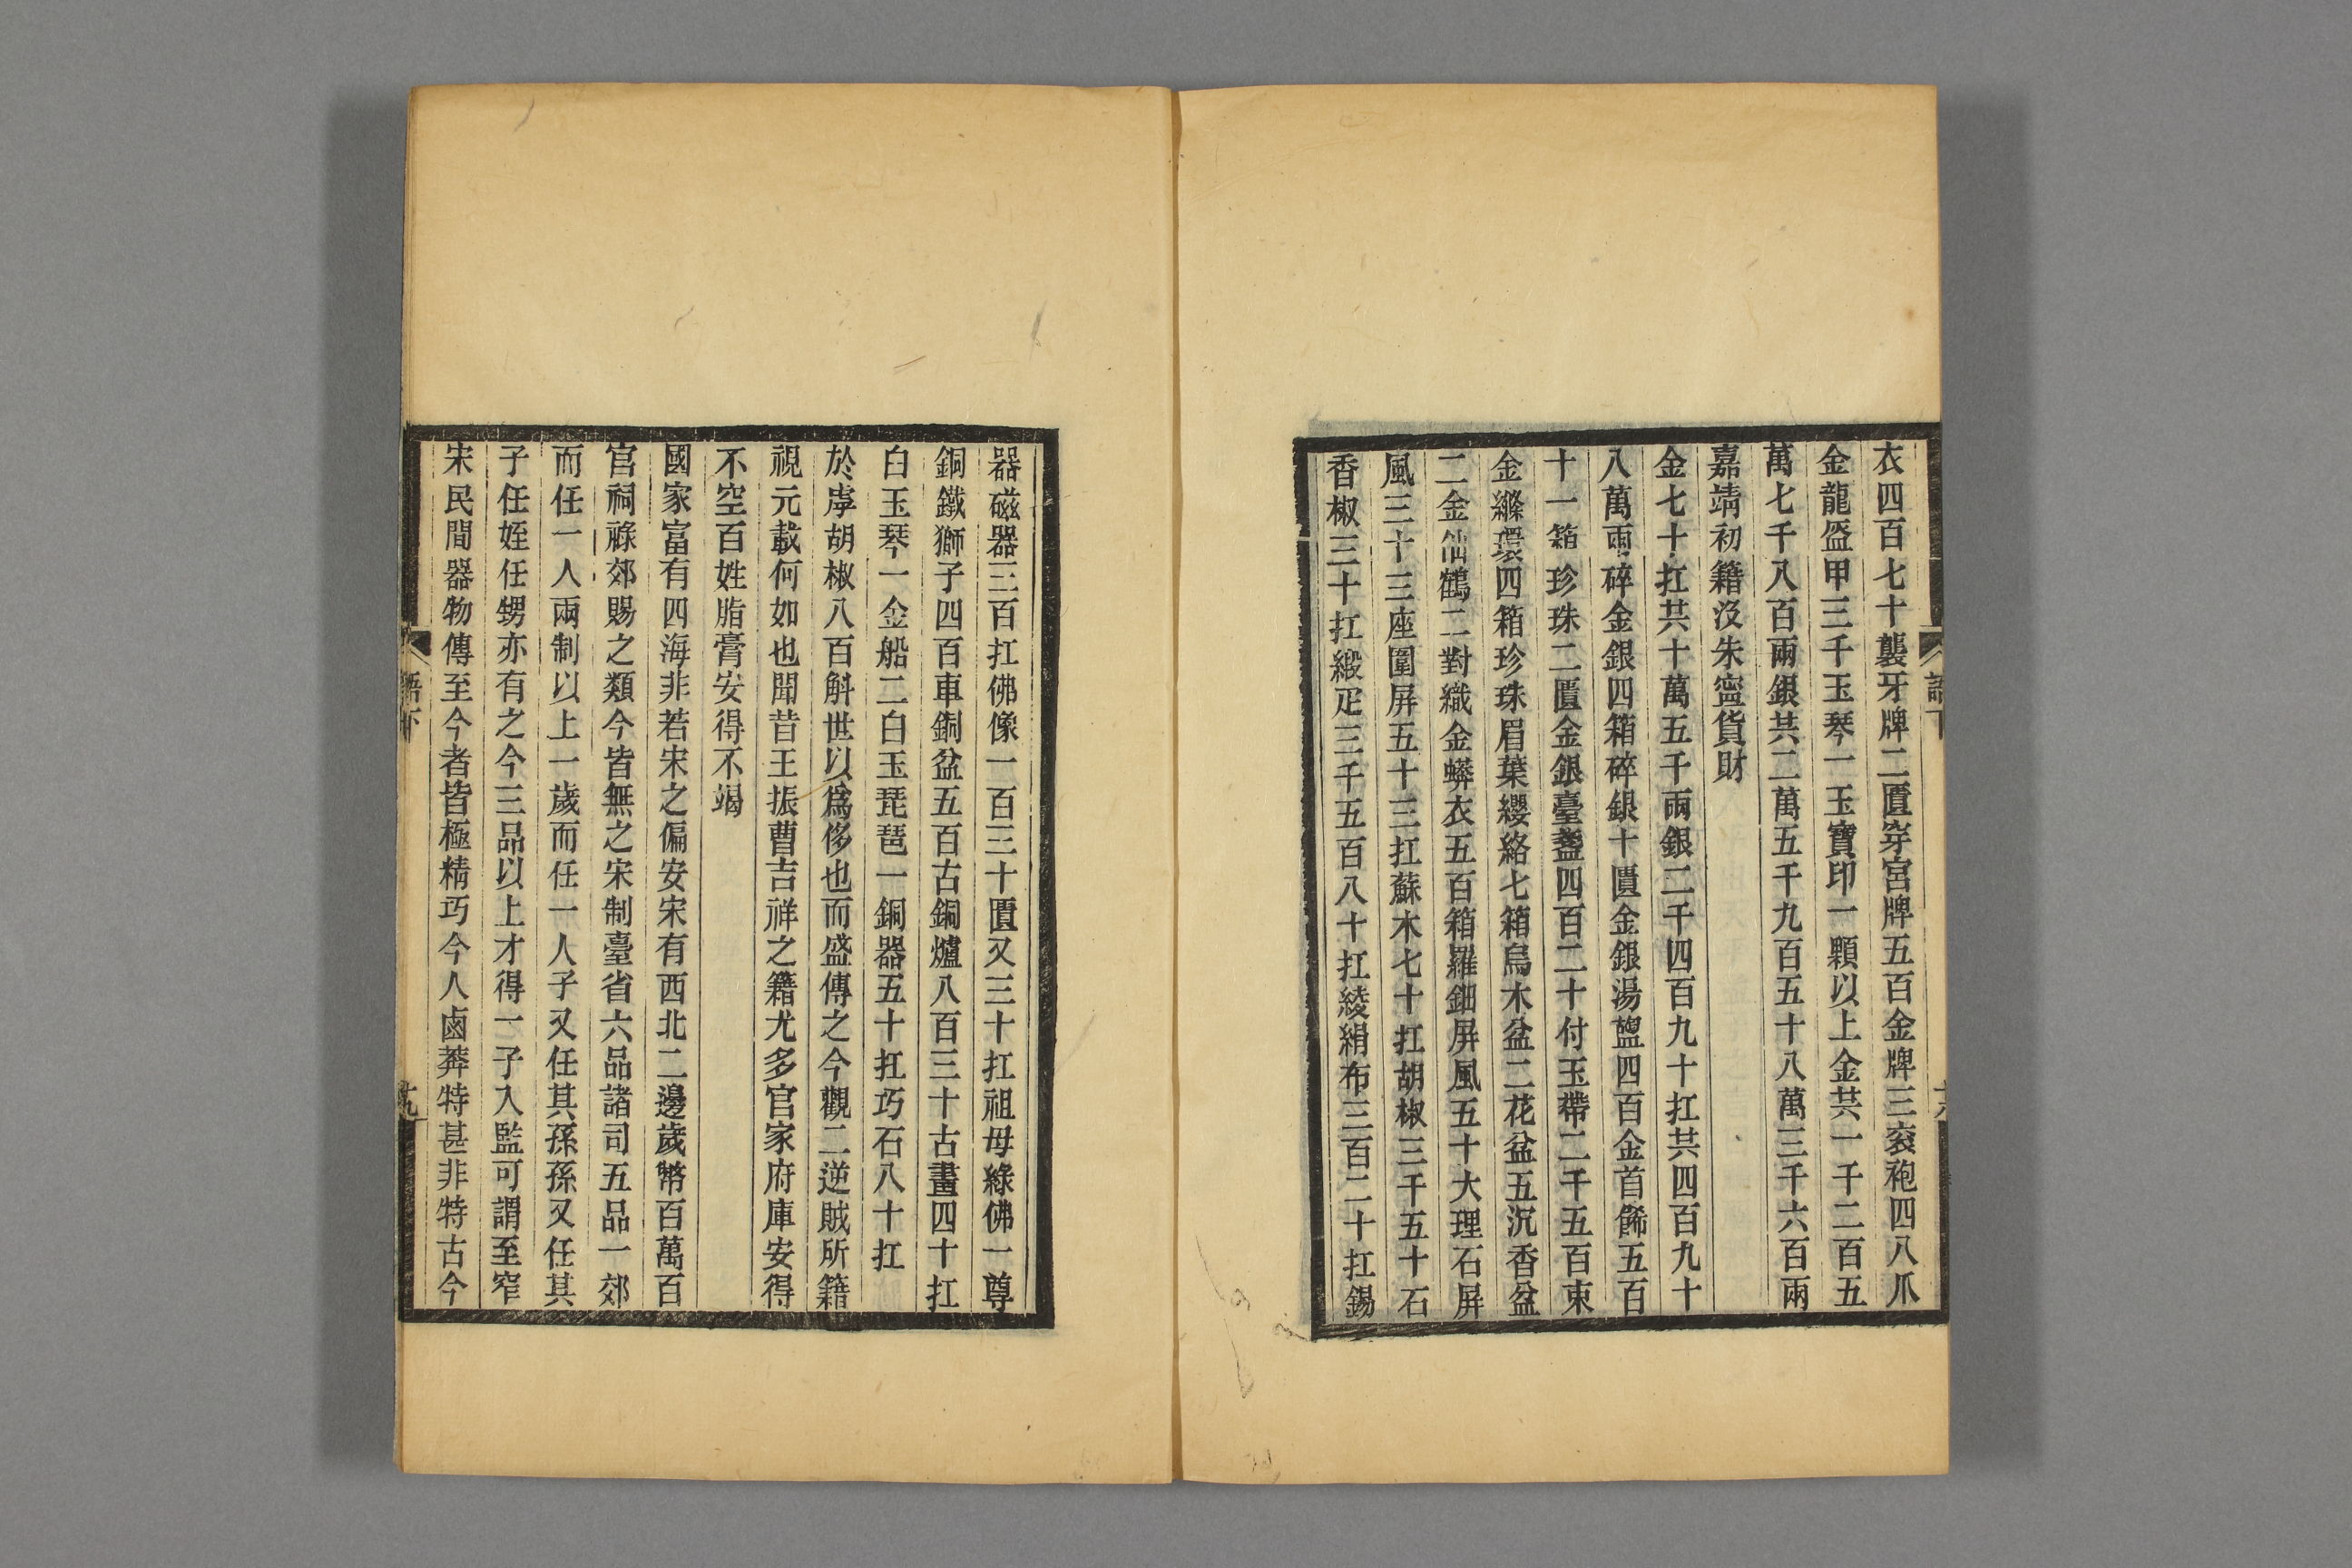 衣四百七十襲牙牌二匱穿宮牌五百金牌三衮袍四八爪
金龍盔甲三千玉琴一玉寶印一顆以上金共一千二百五
萬七千八百兩銀共二萬五千九百五十八萬三千六百兩
嘉靖初籍沒朱寧貨財
金七十扛共十萬五千兩銀二千四百九十扛共四百九十
八萬兩碎金銀四箱碎銀十匱金銀湯盥四百金首餙五百
十一箱珍珠二匱金銀臺盞四百二十付玉帶二千五百束
金縧環四箱珍珠眉葉纓絡七箱烏木盆二花盆五沉香盆
二金仙鶴二對織金蟒衣五百箱羅鈿屏風五十大理石屏
風三十三座圍屏五十三扛蘇木七十扛胡椒三千五十石
香椒三十扛緞疋三千五百八十扛綾絹布三百二十扛錫
器磁器三百扛佛像一百三十匱又三十扛祖母綠佛一尊
銅鐵獅子四百車銅盆五百古銅爐八百三十古畫四十扛
白玉琴一金船二白玉琵琶一銅器五十扛巧石八十扛
於虖胡椒八百斛世以爲侈也而盛傳之今觀二逆賊所籍
視元載何如也聞昔王振曹吉祥之籍尤多官家府庫安得
不空百姓脂膏安得不竭
國家富有四海非若宋之偏安宋有西北二邊歲幣百萬百
官祠祿郊賜之類今皆無之宋制臺省六品諸司五品一郊
而任一人兩制以上一歲而任一人子又任其孫孫又任其
子任姪任甥亦有之今三品以上才得一子入監可謂至窄
宋民間器物傳至今者皆極精巧今人鹵莽特甚非特古今
語下